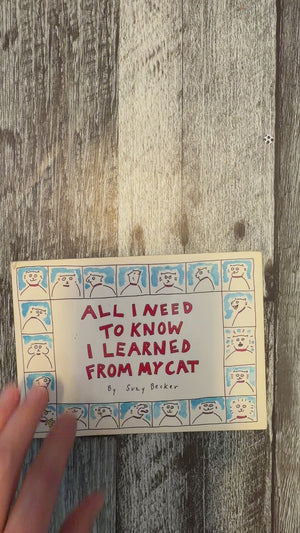 ALL I NEED
TO KNOW
I LEARNED
FROM MY CAT
By Suzy Becker